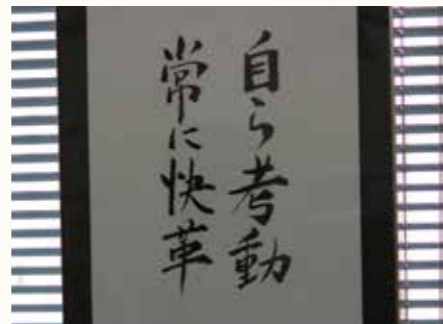 自ら考動
常に快革